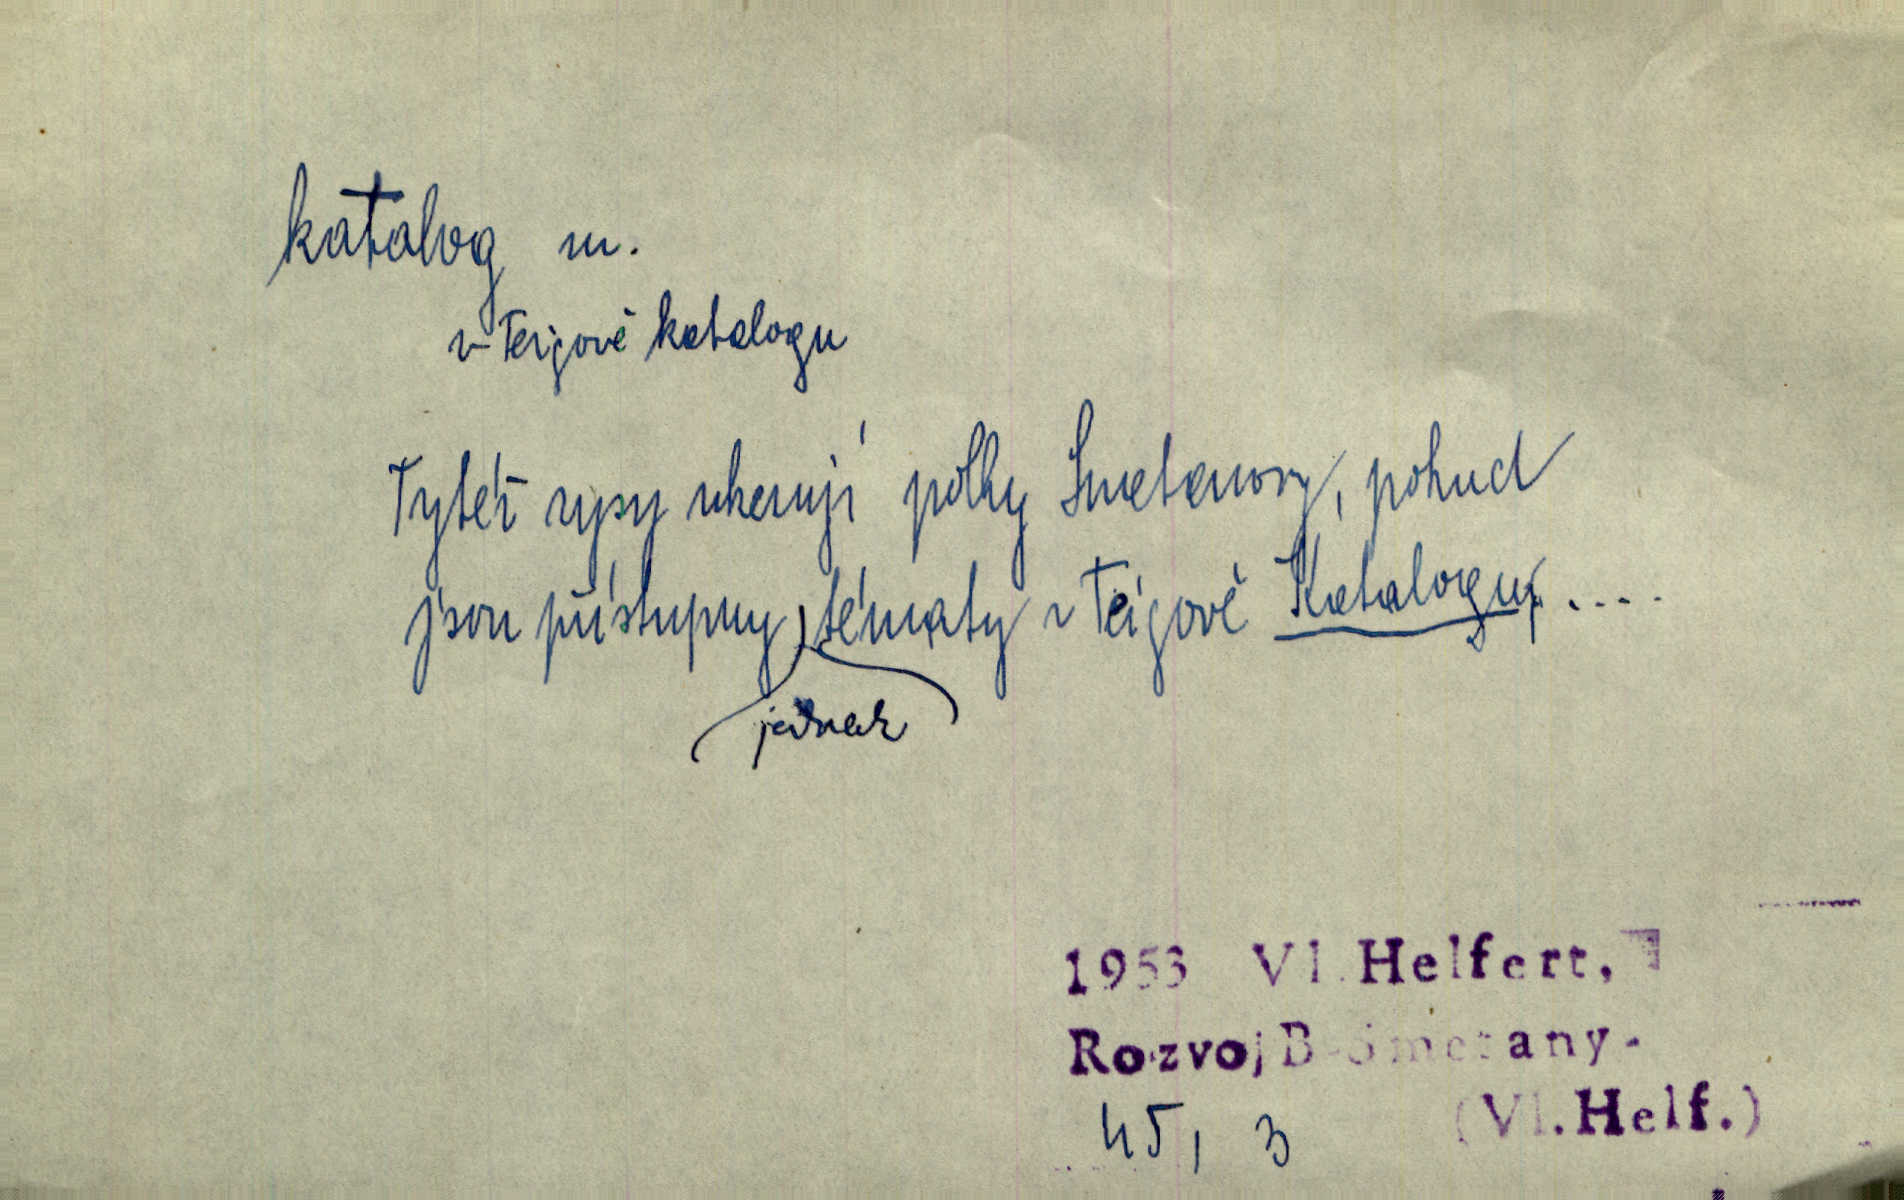 katalog m.
v Teigově katalogu
Tytéž rysy ukazují polky Smetanovy, pokud
jsou přístupny tématy v Teigově Katalogu, ....
jednak
1953 Vl. Helfert,
Rozvoj B. Smetany.
45, 3 (Vl. Helf.)